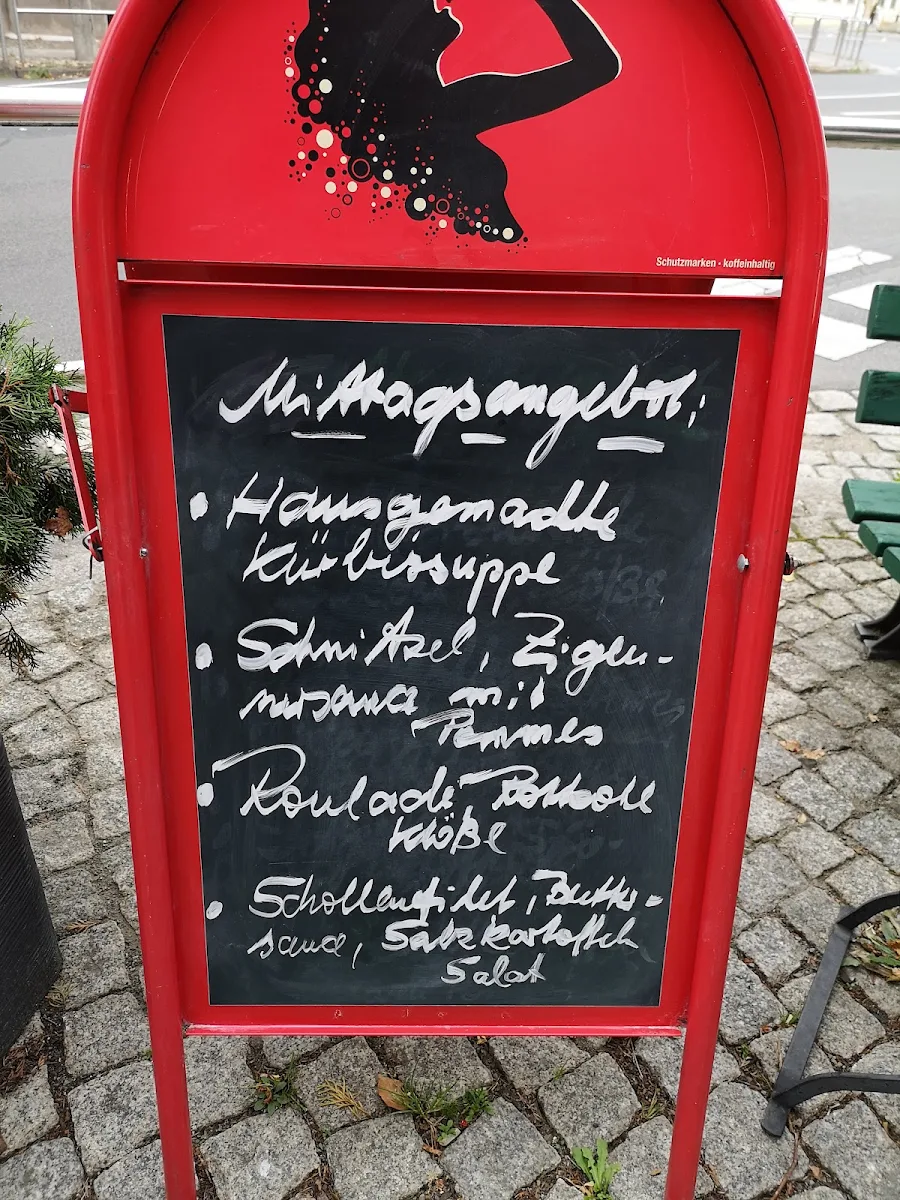 Schutzmarken · koffeinhaltig
Mittagsangebot:
• Hausgemachte
Kürbissuppe
• Schnitzel, Zigeu-
nersauce mit
Pommes
• Roulade, Rotkohl
Klöße
• Schollenfilet, Butter-
sauce, Salzkartoffeln
Salat